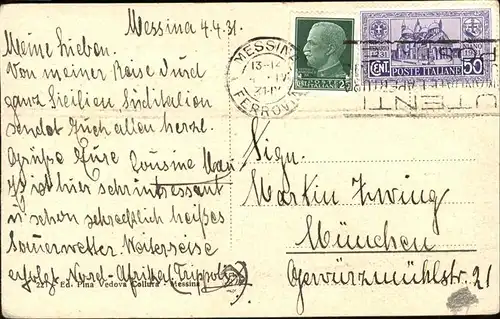 Messina 4.4.31.
Meine Lieben.
Von meiner Reise durch
ganz Sicilien, Süditalien
sendet Euch allen herzl.
Grüße Eure Cousine
Es ist hier sehr interessant
u. schon schrecklich heißes
Sommerwetter. Weiterreise
erfolgt Nord-Afrika (Tripolis)
221 Ed. Pina Vedova Collura - Messina
MESSINA
13-14
FERROVIA
POSTE ITALIANE
1231
CENT.
POSTE ITALIANE
50
UTENTI
Sign.
Martin Zwing
München
Gewürzmühlstr. 21